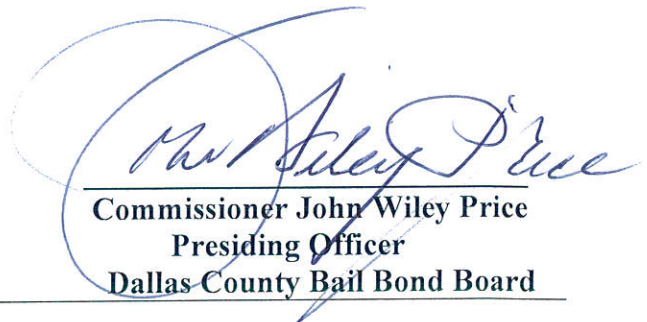 John Wiley Price
Commissioner John Wiley Price
Presiding Officer
Dallas County Bail Bond Board